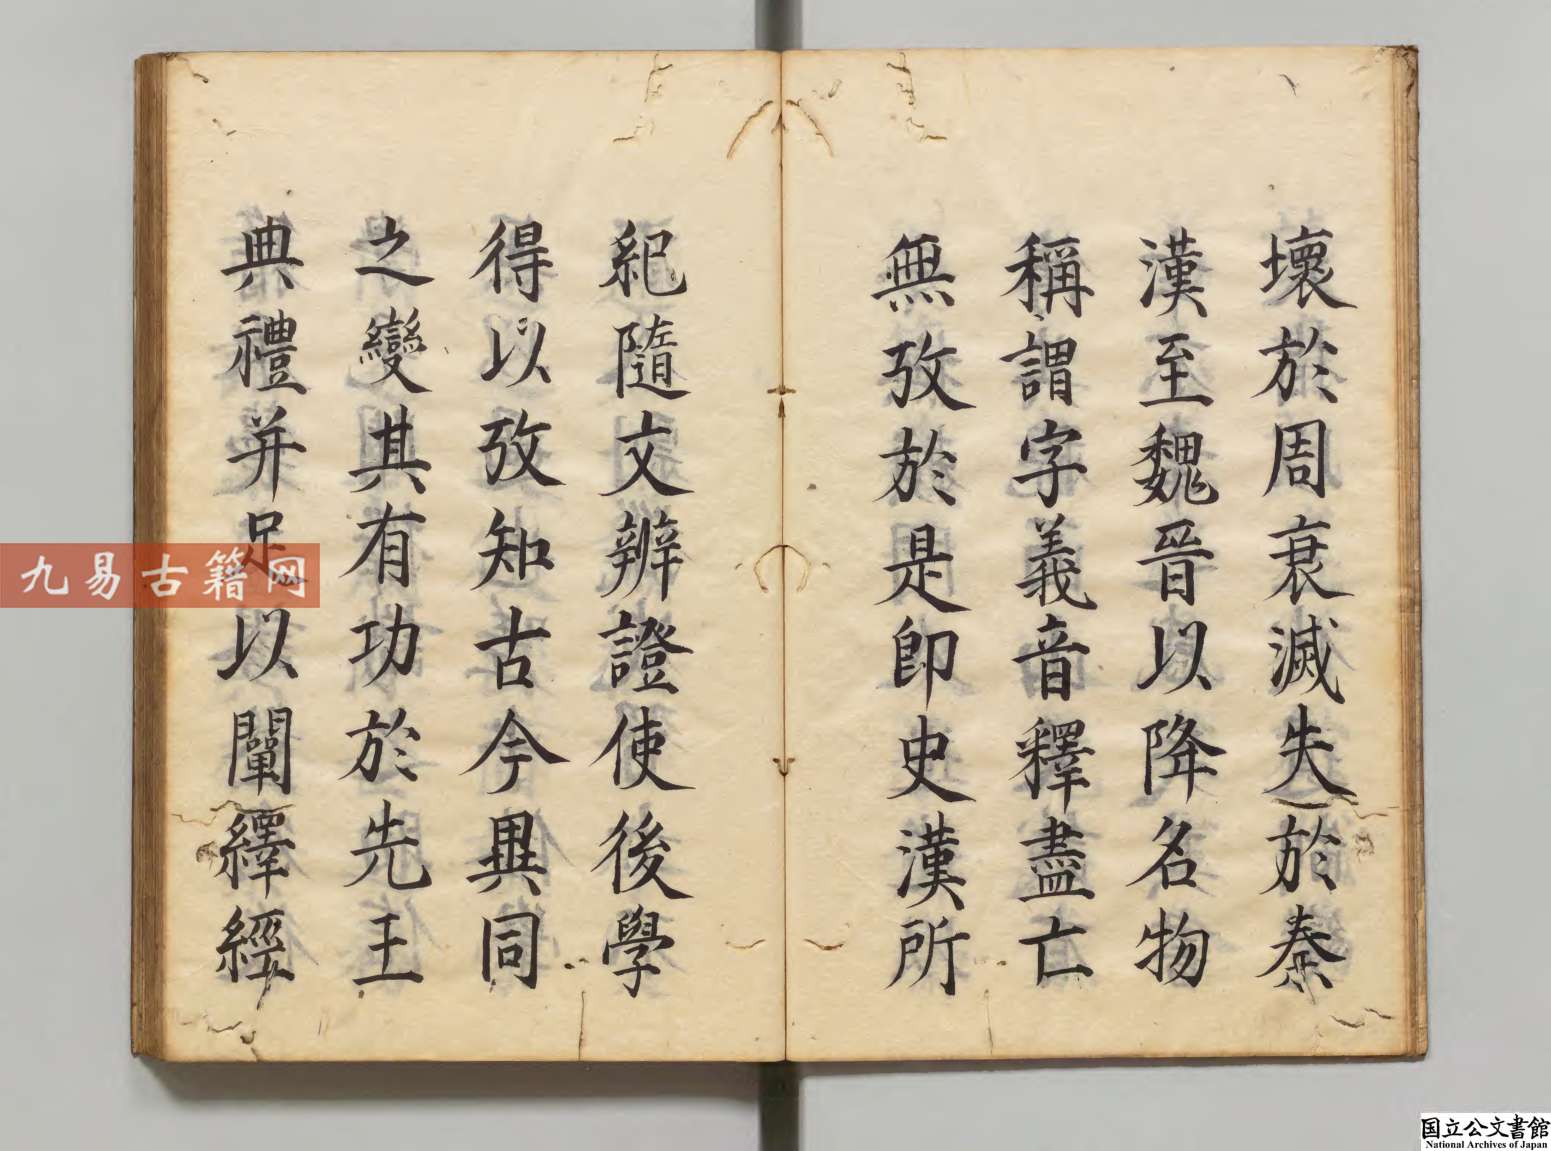 壞於周衰滅失於秦
漢至魏晉以降名物
稱謂字義音釋盡亡
無攷於是卽史漢所
紀隨文辨證使後學
得以攷知古今異同
之變其有功於先王
典禮并足以闡繹經
九易古籍网
国立公文書館
National Archives of Japan